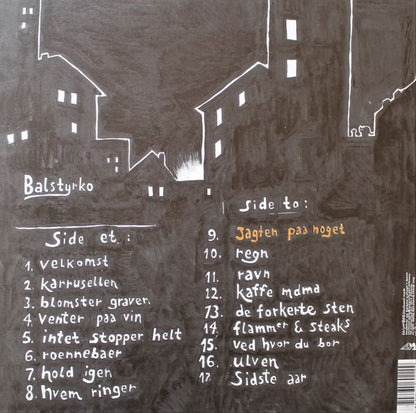 Balstyrko
Side et:
1. velkomst
2. karrusellen
3. blomster graven
4. venter paa vin
5. intet stopper helt
6. roennebaer
7. hold igen
8. hvem ringer
Side to:
9. Jagten paa noget
10. regn
11. ravn
12. kaffe mdma
13. de forkerte sten
14. flammer & steaks
15. ved hvor du bor
16. ulven
17. Sidste aar